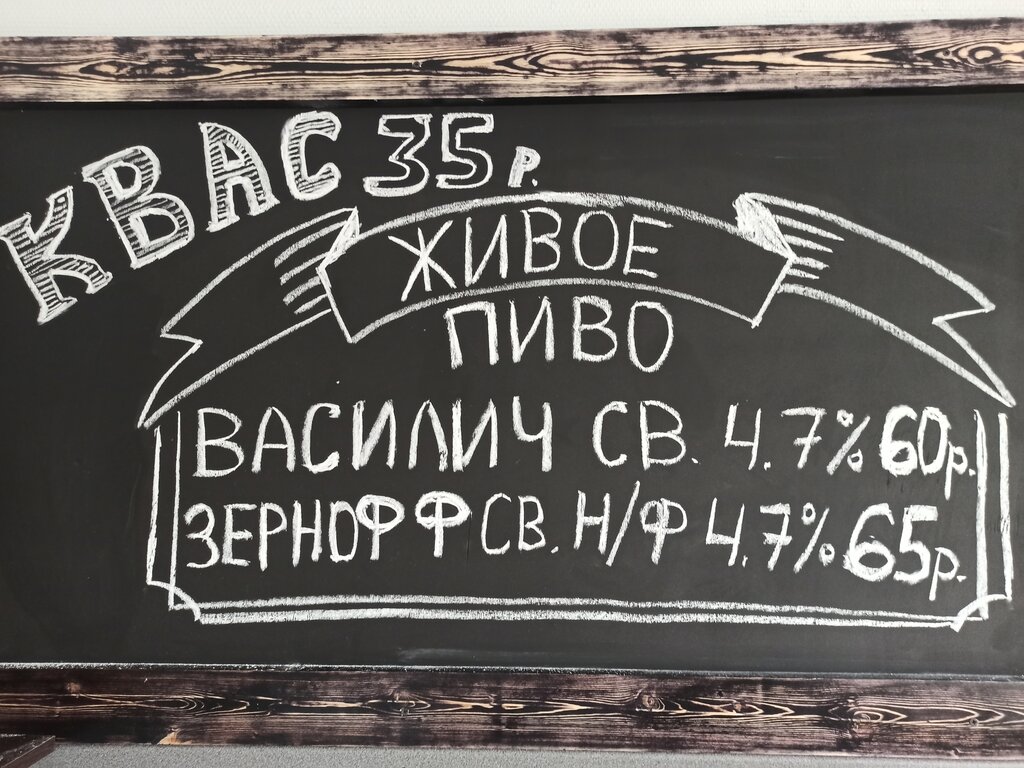 КВАС 35 р.
ЖИВОЕ
ПИВО
ВАСИЛИЧ СВ. 4.7% 60р.
ЗЕРНОФФ СВ. Н/Ф 4.7% 65р.